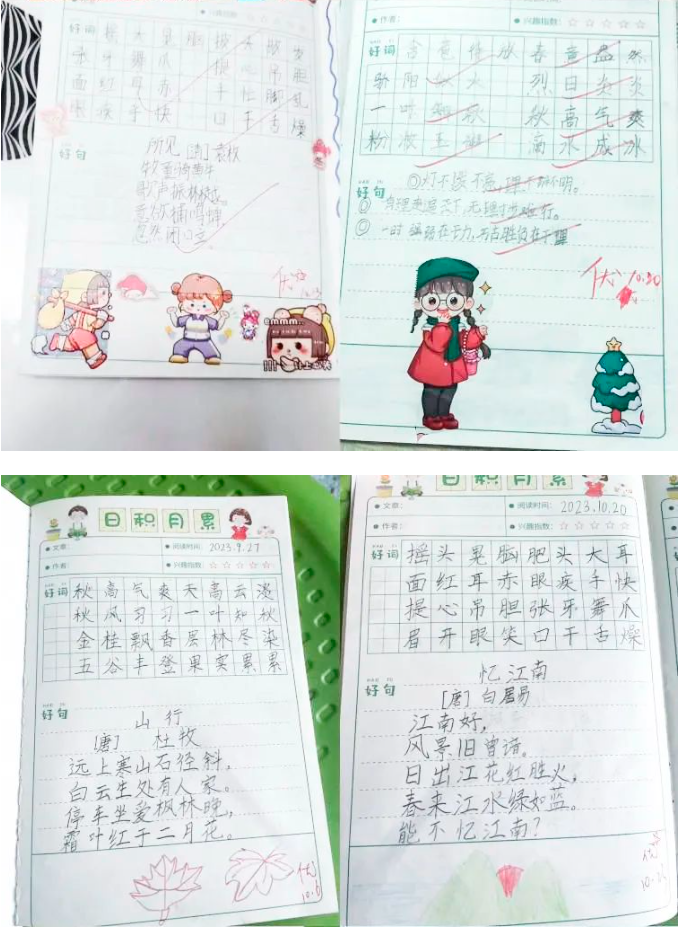 ● 兴趣指数:
好词 摇 大 晃 脑 披 头
张 牙 舞 爪 提 心 吊 胆
面 红 耳 赤 手 忙 脚 乱
眼 疾 手 快 口 干 舌 燥
好句
所见 [清] 袁枚
牧童骑黄牛
歌声振林樾
意欲捕鸣蝉
忽然闭口立。
优
emmm..
计上心头
● 作者:
● 兴趣指数:
好词 春 意 盎 然
骄 阳 似 火 烈 日 炎 炎
一 叶 知 秋 秋 高 气 爽
粉 妆 玉 砌 滴 水 成 冰
好句
①灯不拨不亮,理不辩不明。
② 有理走遍天下,无理寸步难行。
③ 一时强弱在于力,万古胜负在于理
优 10.30
日积月累
● 文章:
● 阅读时间: 2023.9.27
● 作者:
● 兴趣指数:
好词 秋 高 气 爽 天 高 云 淡
秋 风 习 习 一 叶 知 秋
金 桂 飘 香 层 林 尽 染
五 谷 丰 登 果 实 累 累
好句
山 行
[唐] 杜牧
远上寒山石径斜,
白云生处有人家。
停车坐爱枫林晚,
霜叶红于二月花。
优
10.6
日积月累
● 文章:
● 阅读时间: 2023.10.20
● 作者:
● 兴趣指数:
好词 摇 头 晃 脑 肥 头 大 耳
面 红 耳 赤 眼 疾 手 快
提 心 吊 胆 张 牙 舞 爪
眉 开 眼 笑 口 干 舌 燥
好句
忆江南
[唐] 白居易
江南好,
风景旧曾谙。
日出江花红胜火,
春来江水绿如蓝。
能不忆江南?
优